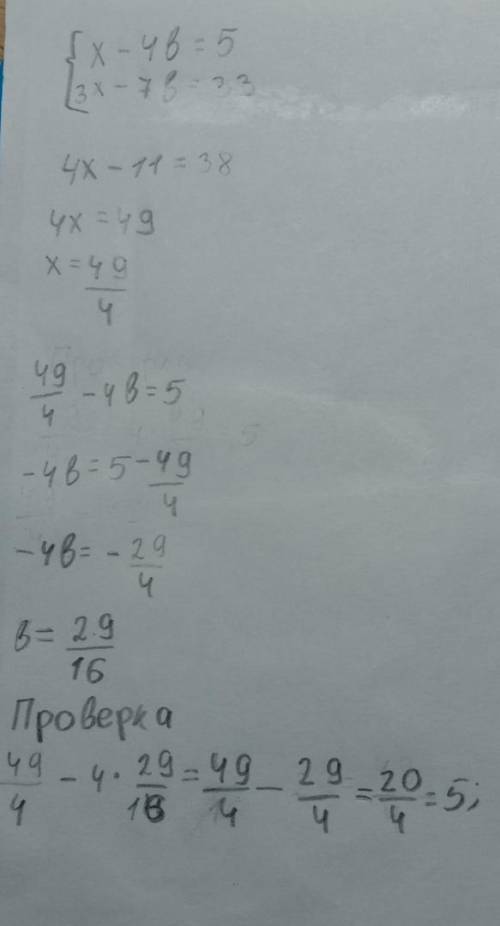 {x - 4в = 5
3x - 7в = 33
4x - 11 = 38
4x = 49
x = 49/4
49/4 - 4в = 5
-4в = 5 - 49/4
-4в = - 29/4
в = 29/16
Проверка
49/4 - 4 · 29/16 = 49/4 - 29/4 = 20/4 = 5;